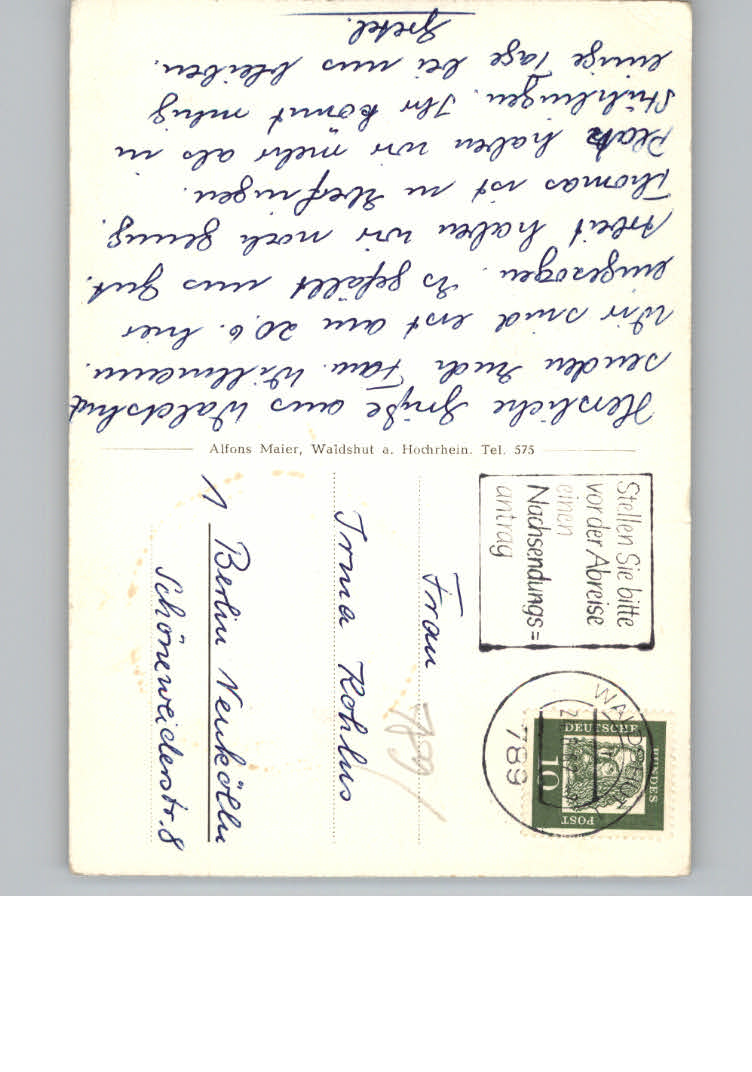 Herzliche Grüße aus Waldshut
senden Euch Fam. Willmann.
Wir sind erst am 20.6. hier
eingezogen. Es gefällt uns gut.
Arbeit haben wir noch genug.
Thomas ist in
Platz haben wir mehr als in
Stühlingen. Ihr könnt ruhig
einige Tage bei uns bleiben.
Gretel.
Alfons Maier, Waldshut a. Hochrhein. Tel. 575
Stellen Sie bitte
vor der Abreise
einen
Nachsendungs=
antrag
WALDSHUT
789
DEUTSCHE
BUNDES
POST
10
789
Frau
Irma Kohlus
1 Berlin Neukölln
Schöneweiderstr. 8